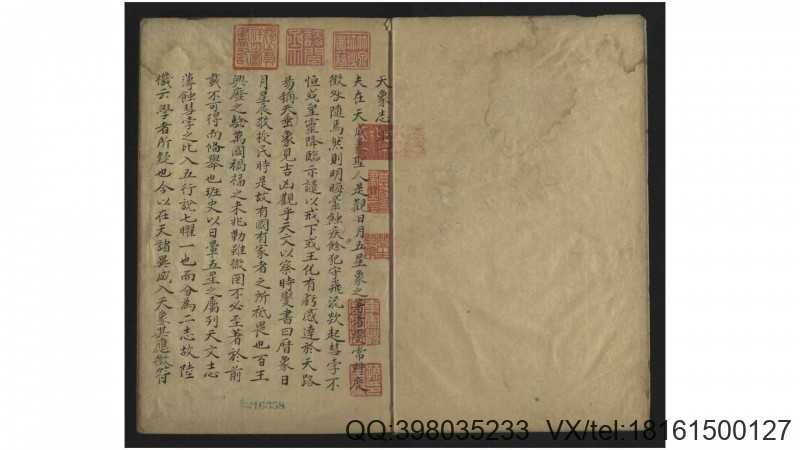 天象志
夫在天成象聖人是觀日月五星象之著者變常舛度
徵咎隨焉然則明晦暈蝕疾餘犯守飛流欻起彗孛不
恒或皇靈降臨示譴以戒下或王化有虧感達於天路
易稱天垂象見吉凶觀乎天文以察時變書曰曆象日
月星辰敬授民時是故有國有家者之所祗畏也百王
興廢之驗萬國禍福之來兆勤雖微罔不必至著於前
載不可得而備舉也班史以日暈五星之屬列天文志
薄蝕彗孛之比入五行說七曜一也而分為二志故陸
機云學者所疑也今以在天諸異咸入天象其應徵符
16358
QQ:398035233 VX/tel:18161500127